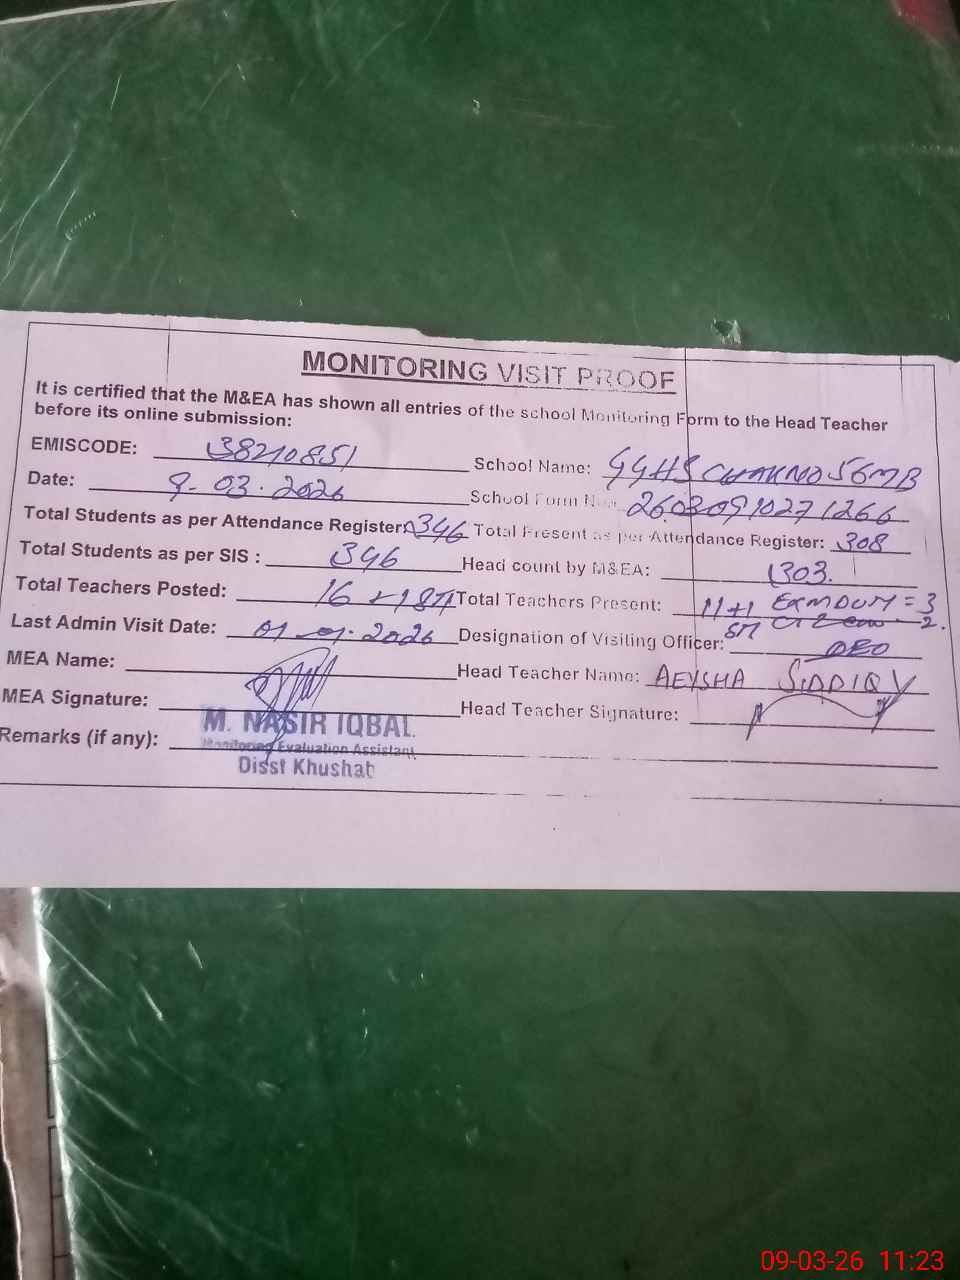 MONITORING VISIT PROOF
It is certified that the M&EA has shown all entries of the school Monitoring Form to the Head Teacher
before its online submission:
EMISCODE: 38210851 School Name: GGHS CHAK NO 56 MB
Date: 9-03-2026 School Form No. 26030910271266
Total Students as per Attendance Register: 346 Total Present as per Attendance Register: 308
Total Students as per SIS : 346 Head count by M&EA: 303.
Total Teachers Posted: 16 Total Teachers Present: 11+1 = 3
Last Admin Visit Date: 2026 Designation of Visiting Officer: DEO
MEA Name: Head Teacher Name: AEYSHA SIDDIQY
MEA Signature: Head Teacher Signature:
M. NASIR IQBAL
Monitoring Evaluation Assistant
Remarks (if any):
Disst Khushab
09-03-26 11:23